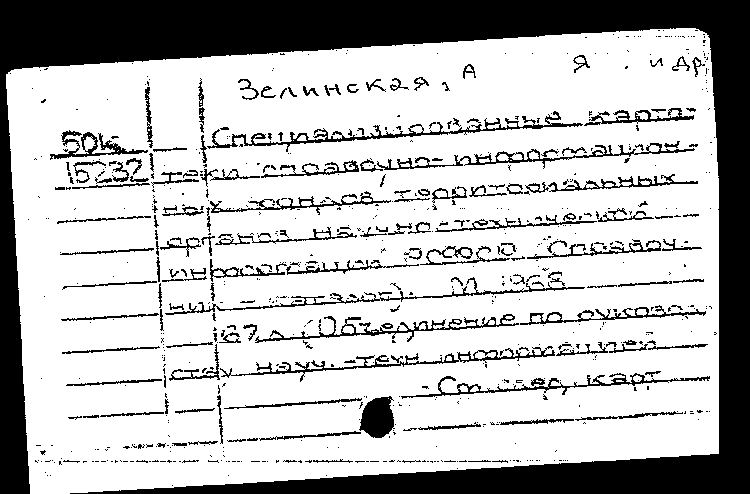 Зелинская, А Я. и др
50к Специализированные карто-
15232 теки справочно-информацион-
ных фондов территориальных
органов научно-технической
информации РСФСР (Справоч-
ник-каталог). М 1968
67 л (Объединение по руковод
ству науч.-техн информацией
- См. след. карт